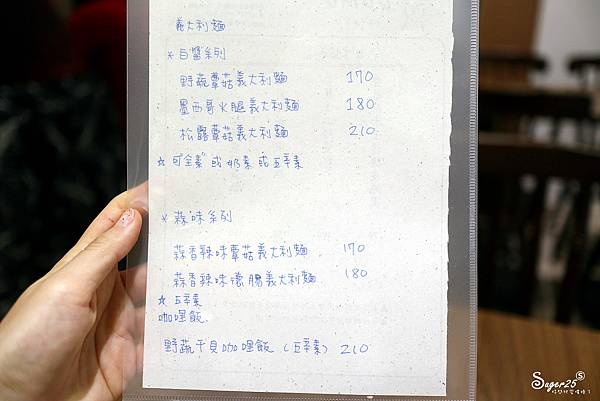 義大利麵
* 白醬系列
野蔬蘑菇義大利麵 170
墨西哥火腿義大利麵 180
松露蘑菇義大利麵 210
☆ 可"全素"或奶素或五辛素
* 蒜味系列
蒜香辣味蘑菇義大利麵 170
蒜香辣味德腸義大利麵 180
☆ 五辛素
咖哩飯.
野蔬干貝咖哩飯 (五辛素) 210
Sager25